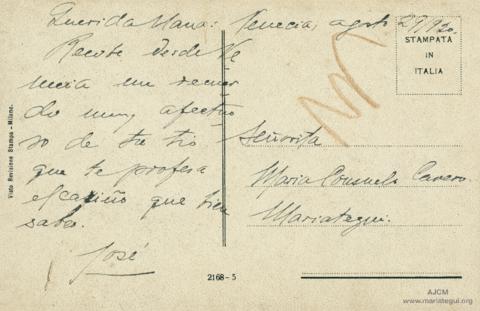 Querida Nana: Venecia, agosto 29/920.
Recibe desde Ve-
necia un recuer-
do muy afectuo-
so de tu tio
que te profesa
el cariño que bien
sabes.
José
Visto Revisione Stampa - Milano.
2168 - 5
STAMPATA
IN
ITALIA
Señorita
Maria Consuelo Cavero
Mariategui.
AJCM
www.mariategui.org